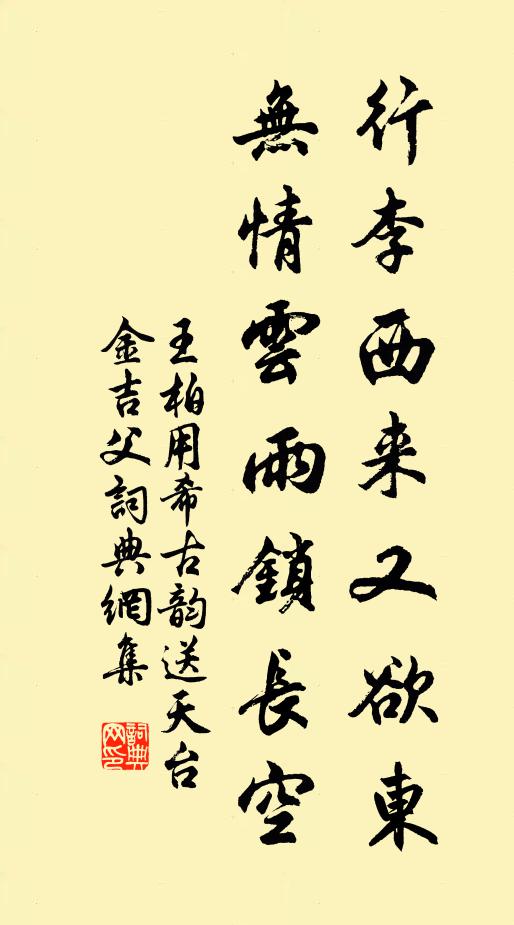 行李西来又欲東
無情雲雨鎖長空
王柏用希古韵送天台
金吉父詞典網集
詞典网印